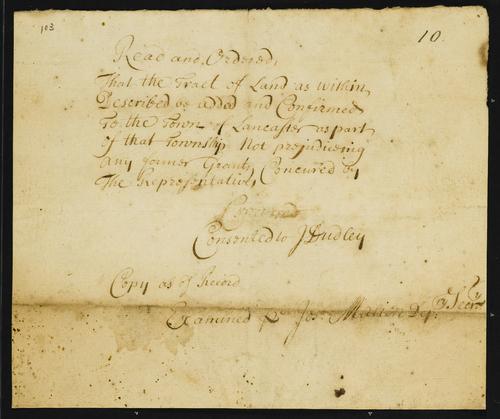 103
10.
Read and Ordered,
That the Tract of Land as within
Described be added and Confirmed
To the Town of Lancaster as part
of that Township Not prejudiceing
any former Grant, Concured by
The Representatives
Consented to J Dudley
Copy as of Record
Examined pr Jos: Dep: Secry